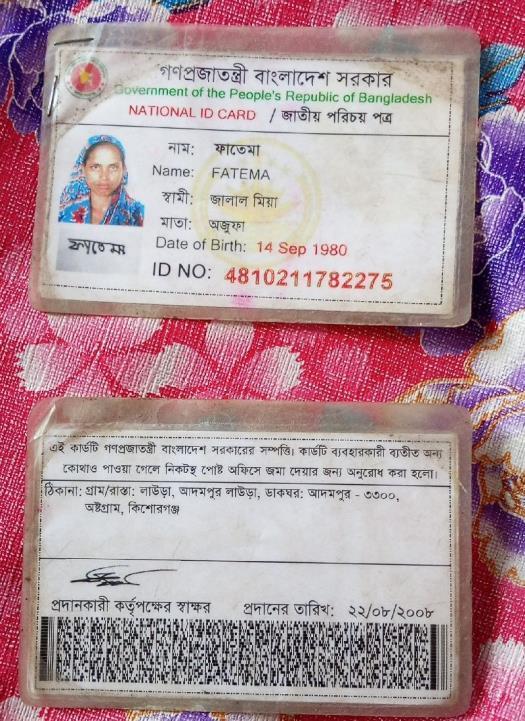 গণপ্রজাতন্ত্রী বাংলাদেশ সরকার
Government of the People's Republic of Bangladesh
NATIONAL ID CARD / জাতীয় পরিচয় পত্র
নাম: ফাতেমা
Name: FATEMA
স্বামী: জালাল মিয়া
মাতা: অজুফা
ফাতেমা
Date of Birth: 14 Sep 1980
ID NO: 4810211782275
এই কার্ডটি গণপ্রজাতন্ত্রী বাংলাদেশ সরকারের সম্পত্তি। কার্ডটি ব্যবহারকারী ব্যতীত অন্য
কোথাও পাওয়া গেলে নিকটস্থ পোষ্ট অফিসে জমা দেয়ার জন্য অনুরোধ করা হলো।
ঠিকানা: গ্রাম/রাস্তা: লাউড়া, আদমপুর লাউড়া, ডাকঘর: আদমপুর - ৩৩০০,
অষ্টগ্রাম, কিশোরগঞ্জ
প্রদানকারী কর্তৃপক্ষের স্বাক্ষর প্রদানের তারিখ: ২২/০৮/২০০৮